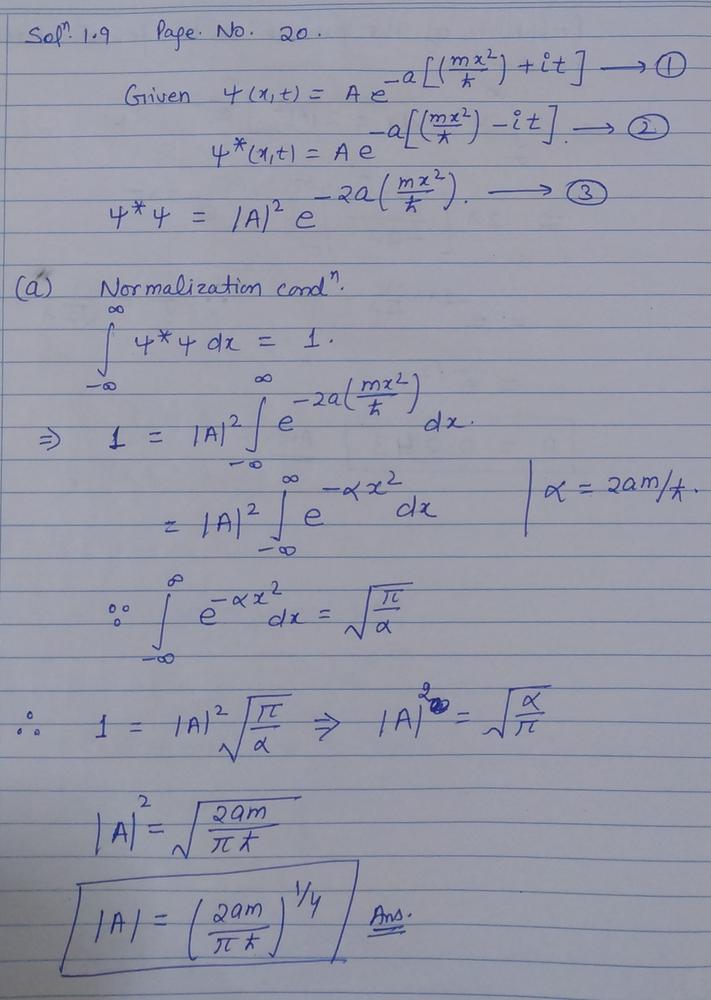 Solⁿ. 1.9 Page. No. 20.
Given ψ(x,t) = A e^{-a[(mx²/ħ) + it]} ⟶ ①
ψ*(x,t) = A e^{-a[(mx²/ħ) - it]}. ⟶ ②
ψ*ψ = |A|² e^{-2a(mx²/ħ)}. ⟶ ③
(a) Normalization condⁿ.
∫_{-∞}^{∞} ψ*ψ dx = 1.
⇒ 1 = |A|² ∫_{-∞}^{∞} e^{-2a(mx²/ħ)} dx.
= |A|² ∫_{-∞}^{∞} e^{-αx²} dx | α = 2am/ħ.
∵ ∫_{-∞}^{∞} e^{-αx²} dx = √(π/α)
∴ 1 = |A|² √(π/α) ⇒ |A|² = √(α/π)
|A|² = √(2am/πħ)
|A| = (2am/πħ)^{1/4} Ans.